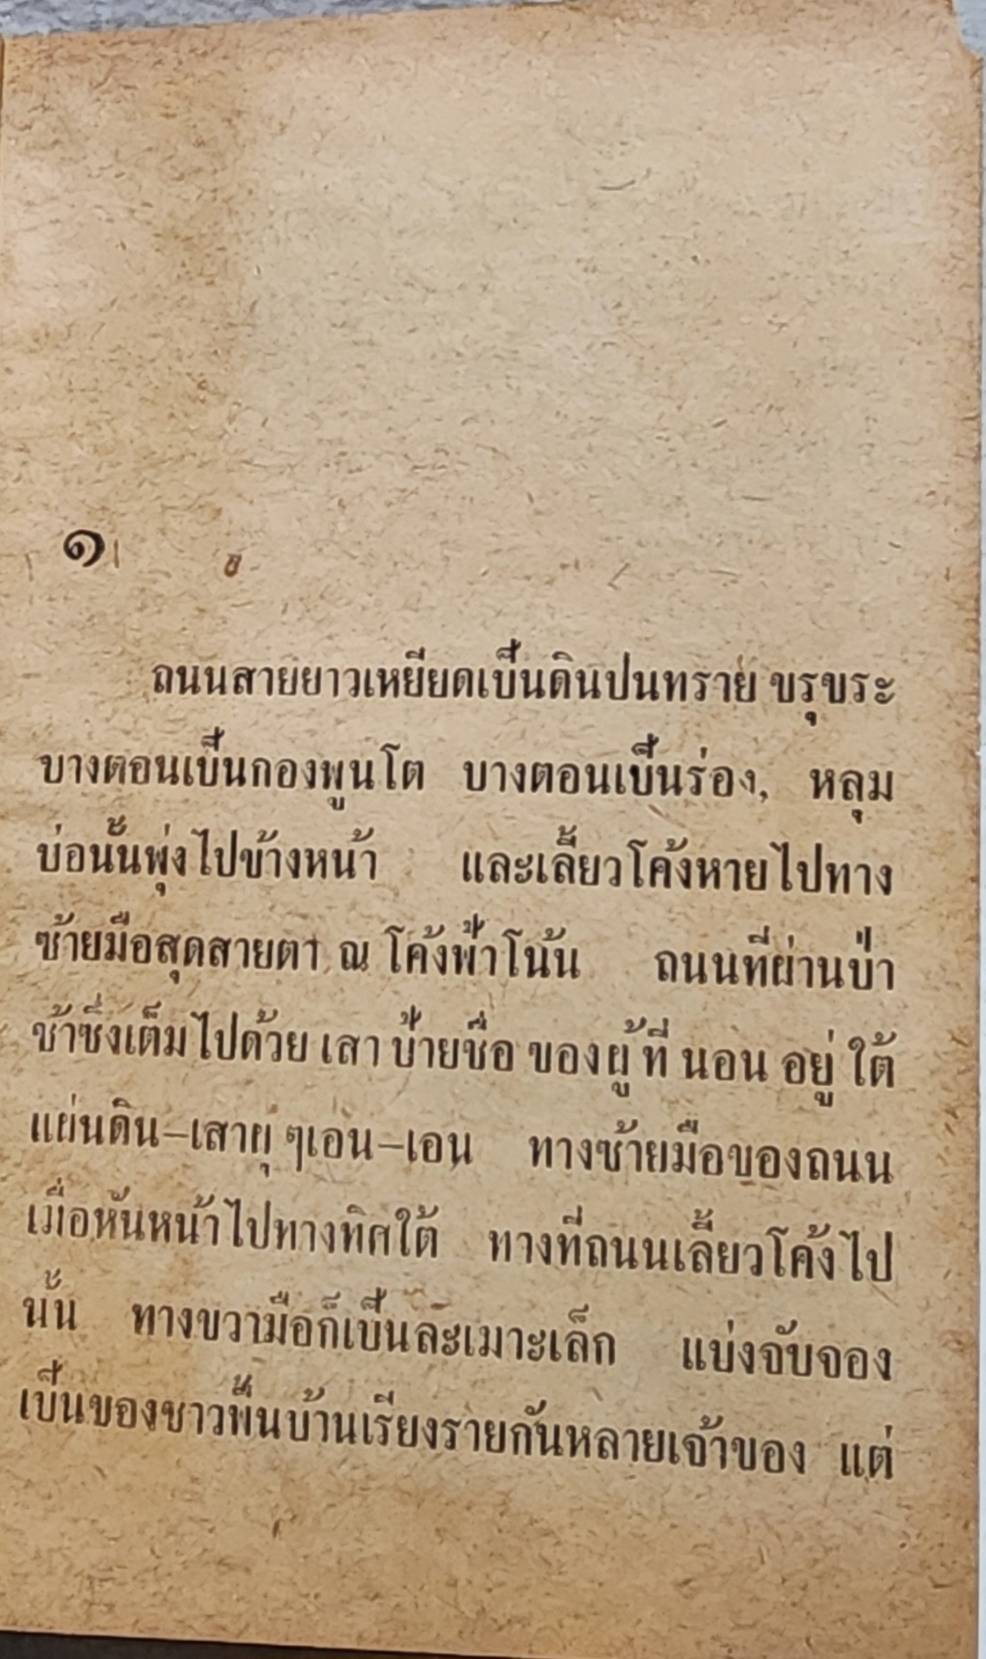 ๑
ถนนสายยาวเหยียดเป็นดินปนทราย ขรุขระ
บางตอนเป็นกองพูนโต บางตอนเป็นร่อง, หลุม
บ่อนั้นพุ่งไปข้างหน้า และเลี้ยวโค้งหายไปทาง
ซ้ายมือสุดสายตา ณ โค้งฟ้าโน้น ถนนที่ผ่านป่า
ช้าซึ่งเต็มไปด้วย เสา ป้ายชื่อ ของ ผู้ ที่ นอน อยู่ ใต้
แผ่นดิน–เสาผุ ๆเอน–เอน ทางซ้ายมือของถนน
เมื่อหันหน้าไปทางทิศใต้ ทางที่ถนนเลี้ยวโค้งไป
นั้น ทางขวามือก็เป็นละเมาะเล็ก แบ่งจับจอง
เป็นของชาวพื้นบ้านเรียงรายกันหลายเจ้าของ แต่